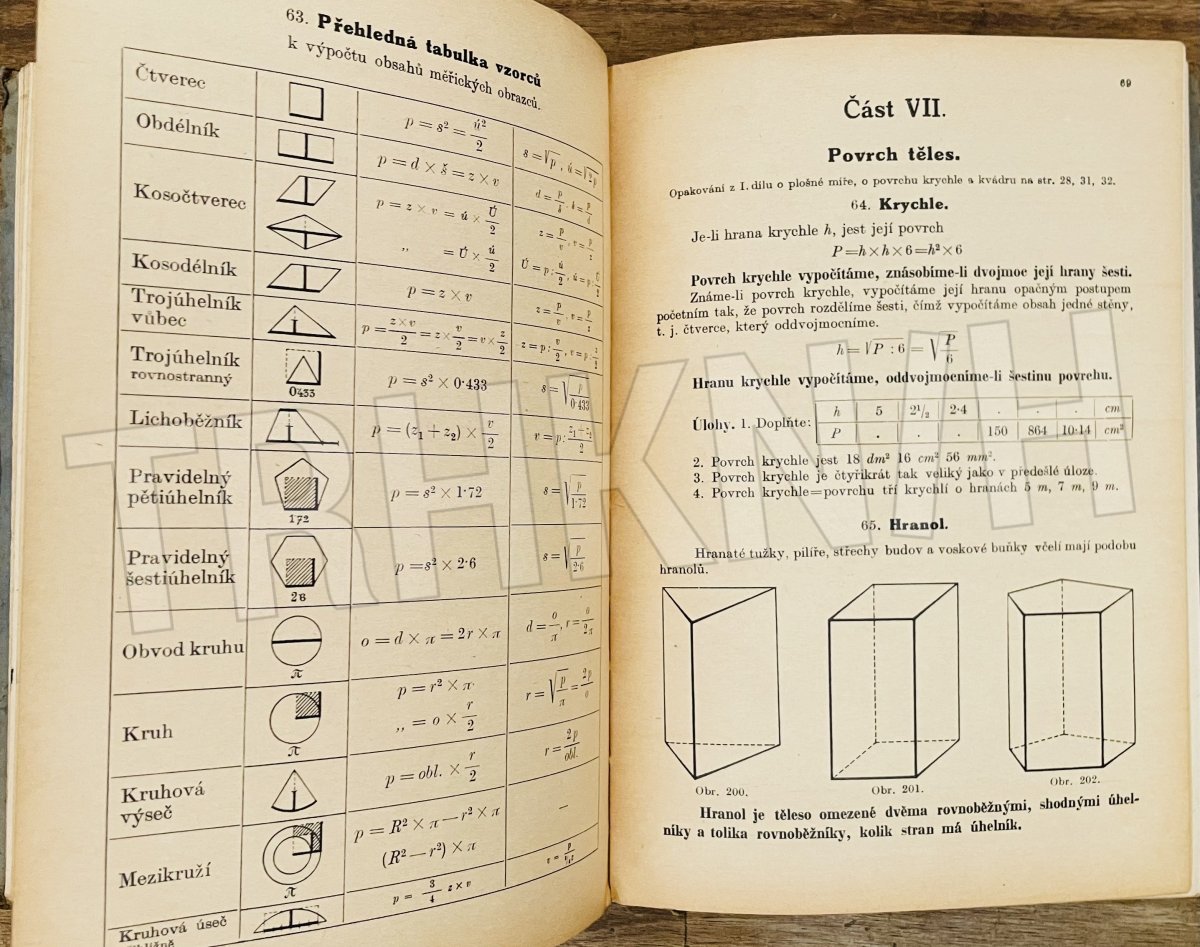 63. Přehledná tabulka vzorců
k výpočtu obsahů měřických obrazců.
Čtverec p = s² = ú²/2 s = √p, ú = √2p
Obdélník p = d × š = z × v
Kosočtverec p = z × v = ú × Ú/2 z = p/v, v = p/z
„ = Ú × ú/2 Ú = p : ú/2, ú = p : Ú/2
Kosodélník p = z × v z = p/v, v = p/z
Trojúhelník
vůbec p = z×v/2 = z × v/2 = v × z/2 z = p : v/2, v = p : z/2
Trojúhelník
rovnostranný 0433 p = s² × 0·433 s = √p/0·433
Lichoběžník p = (z₁ + z₂) × v/2 v = p : z₁+z₂/2
Pravidelný
pětiúhelník 172 p = s² × 1·72 s = √p/1·72
Pravidelný
šestiúhelník 26 p = s² × 2·6 s = √p/2·6
Obvod kruhu π o = d × π = 2r × π d = o/π, r = o/2π
Kruh π p = r² × π r = √p/π = 2p/o
„ = o × r/2
Kruhová
výseč p = obl. × r/2 r = 2p/obl.
Mezikruží π p = R² × π — r² × π —
(R² — r²) × π
Kruhová úseč p = 3/4 z × v
69
Část VII.
Povrch těles.
Opakování z I. dílu o plošné míře, o povrchu krychle a kvádru na str. 28, 31, 32.
64. Krychle.
Je-li hrana krychle h, jest její povrch
P = h × h × 6 = h² × 6
Povrch krychle vypočítáme, znásobíme-li dvojmoc její hrany šesti.
Známe-li povrch krychle, vypočítáme její hranu opačným postupem
početním tak, že povrch rozdělíme šesti, čímž vypočítáme obsah jedné stěny,
t. j. čtverce, který oddvojmocníme.
h = √P : 6 = √P/6
Hranu krychle vypočítáme, oddvojmocníme-li šestinu povrchu.
Úlohy. 1. Doplňte: h 5 2¹/₂ 2·4 . . . cm
P . . . 150 864 10·14 cm²
2. Povrch krychle jest 18 dm² 16 cm² 56 mm².
3. Povrch krychle je čtyřikrát tak veliký jako v předešlé úloze.
4. Povrch krychle = povrchu tří krychlí o hranách 5 m, 7 m, 9 m.
65. Hranol.
Hranaté tužky, pilíře, střechy budov a voskové buňky včelí mají podobu
hranolů.
Obr. 200. Obr. 201. Obr. 202.
Hranol je těleso omezené dvěma rovnoběžnými, shodnými úhel-
níky a tolika rovnoběžníky, kolik stran má úhelník.
TRHKNIH